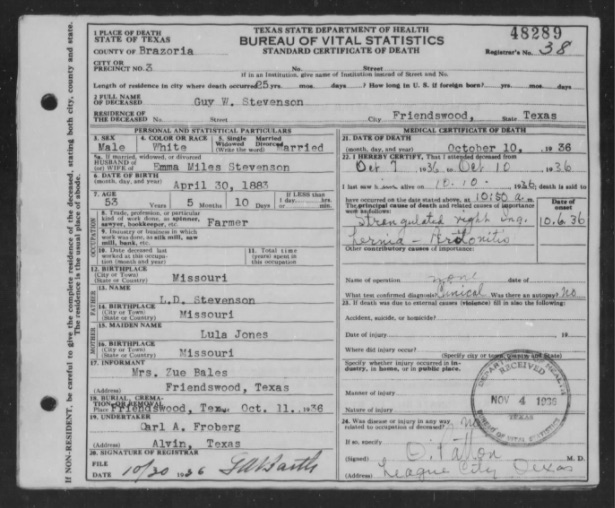 TEXAS STATE DEPARTMENT OF HEALTH
BUREAU OF VITAL STATISTICS
STANDARD CERTIFICATE OF DEATH
48289
Registrar's No. 38
1 PLACE OF DEATH
STATE OF TEXAS
COUNTY OF Brazoria
CITY OR
PRECINCT NO. 3 No. Street
If in an Institution, give name of Institution instead of Street and No.
Length of residence in city where death occurred 25 yrs. mos. days. ? How long in U. S. if foreign born? yrs. mos. days
2 FULL NAME
OF DECEASED Guy W. Stevenson
RESIDENCE OF
THE DECEASED No. Street City Friendswood, State Texas
PERSONAL AND STATISTICAL PARTICULARS
3. SEX 4. COLOR OR RACE 5. Single Married
Widowed Divorced
(Write the word)
Male White Married
5a. If married, widowed, or divorced
HUSBAND OF
(or) WIFE OF Emma Miles Stevenson
6. DATE OF BIRTH
(month, day, and year) April 30, 1883
7. AGE IF LESS than
53 Years 5 Months 10 Days
OCCUPATION
8. Trade, profession, or particular
kind of work done, as spinner,
sawyer, bookkeeper, etc. Farmer
9. Industry or business in which
work was done, as silk mill, saw
mill, bank, etc.
10. Date deceased last
worked at this occupa-
tion (month and year)
11. Total time
(years) spent in
this occupation
12. BIRTHPLACE
(City or Town)
(State or Country) Missouri
FATHER
13. NAME
L.D. Stevenson
14. BIRTHPLACE
(City or Town)
(State or Country) Missouri
MOTHER
15. MAIDEN NAME
Lula Jones
16. BIRTHPLACE
(City or Town)
(State or Country) Missouri
17. INFORMANT
Mrs. Zue Bales
(Address) Friendswood, Texas
18. BURIAL, CREMA-
TION OR REMOVAL
Place Friendswood, Tex. Oct. 11. 1936
19. UNDERTAKER
Carl A. Froberg
(Address) Alvin, Texas
20. SIGNATURE OF REGISTRAR
FILE
DATE 10/20 1936
MEDICAL CERTIFICATE OF DEATH
21. DATE OF DEATH
(month, day, and year) October 10, 1936
22. I HEREBY CERTIFY, That I attended deceased from
Oct 7 1936 to Oct 10 1936
I last saw h alive on 10-10- 1936; death is said to
have occurred on the date stated above, at 10:50 a.m.
The principal cause of death and related causes of importance
were as follows:
Date of
onset
Strangulated right Ing.
10.6.36
hernia -
Other contributory causes of importance:
Name of operation none date of
What test confirmed diagnosis? Clinical Was there an autopsy? No
23. If death was due to external causes (violence) fill in also the following:
Accident, suicide, or homicide?
Date of injury 19
Where did injury occur?
(Specify city or town, county and State)
Specify whether injury occurred in in-
dustry, in home, or in public place.
Manner of injury
Nature of injury
24. Was disease or injury in any way
related to occupation of deceased? no
If so, specify
(Signed) M. D.
(Address) League City, Texas
RECEIVED
NOV 4 1936
TEXAS
BUREAU OF VITAL STATISTICS
If NON-RESIDENT, be careful to give the complete residence of the deceased, stating both city, county and state.
The residence is the usual place of abode.